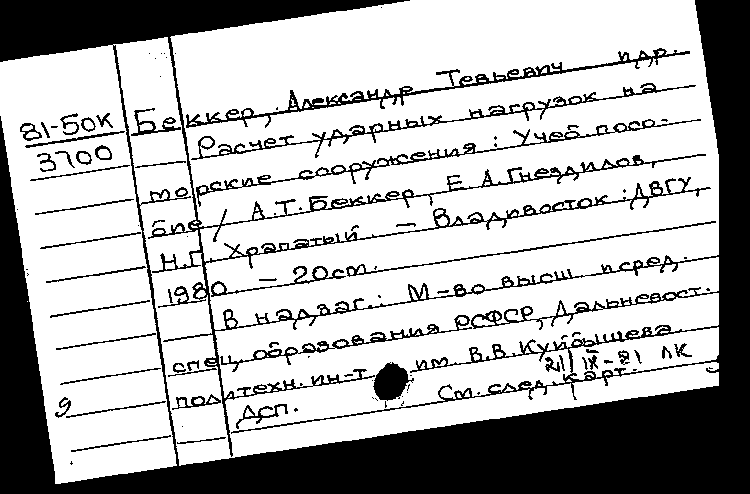 81-50К
3700
Беккер, Александр Тевьевич и др.
Расчет ударных нагрузок на
морские сооружения : Учеб. посо-
бие / А.Т. Беккер, Е.А. Гнездилов,
Н.Г. Храпатый. – Владивосток : ДВГУ,
1980. – 20 см.
В надзаг.: М-во высш. и сред.
спец. образования РСФСР, Дальневост.
политехн. ин-т им. В.В. Куйбышева.
21/IX-81 ЛК
ДСП. См. след. карт.
9